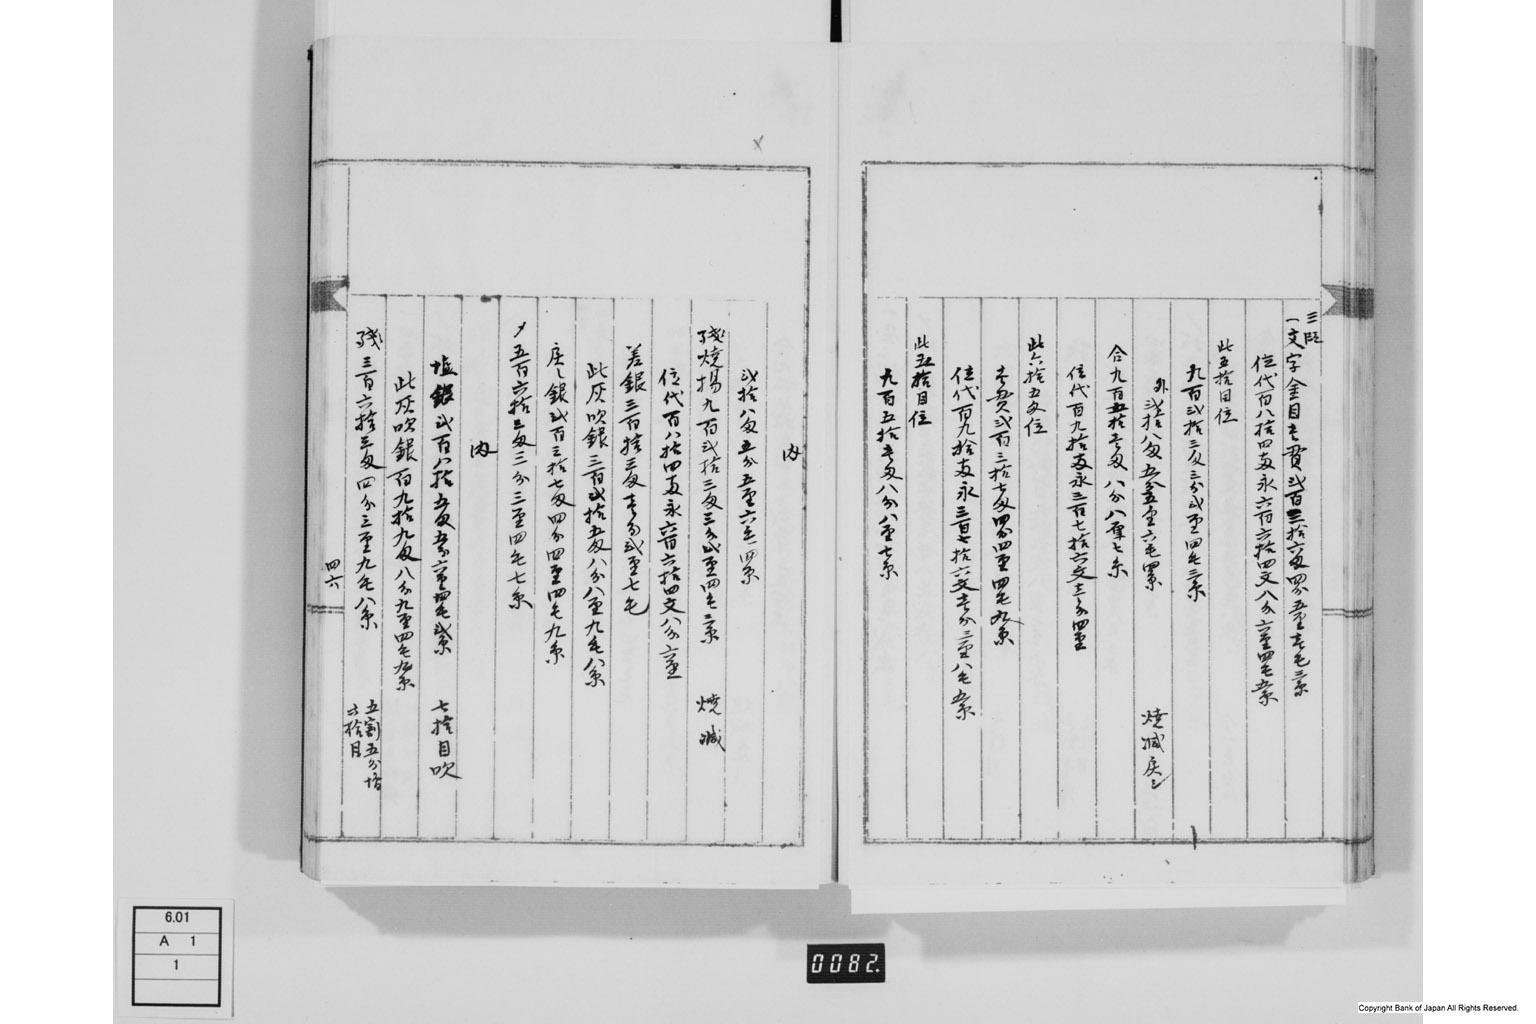 三匁
一文字金目壱貫弐百三拾六匁四分五厘壱毛三糸
位代百八拾四両永六百六拾四文八分六厘四毛五糸
此五拾目位
九百弐拾三匁三分弐厘四毛三糸
外弐拾八匁五分五厘六毛四糸 焼減戻シ
合九百五拾壱匁八分八厘七糸
位代百九拾両永三百七拾六文三分四厘
此六拾五匁位
壱貫弐百三拾七匁四分四厘四毛九糸
位代百九拾両永三百七拾六文壱分三厘八毛五糸
此五拾目位
九百五拾壱匁八分八厘七糸
内
弐拾八匁五分五厘六毛四糸
残焼揚九百弐拾三匁三分弐厘四毛三糸 焼減
位代百八拾四両永六百六拾四文八分六厘
差銀三百拾三匁壱分弐厘七毛
此灰吹銀三百弐拾五匁八分八厘九毛八糸
戻シ銀弐百三拾七匁四分四厘四毛九糸
〆五百六拾三匁三分三厘四毛七糸
内
塩銀弐百八拾五匁五分六厘四毛弐糸 七拾目吹
此灰吹銀百九拾九匁八分九厘四毛九糸
残三百六拾三匁四分三厘九毛八糸
五割五分
六拾目
四六
6.01
A 1
1
0082.
Copyright Bank of Japan All Rights Reserved.